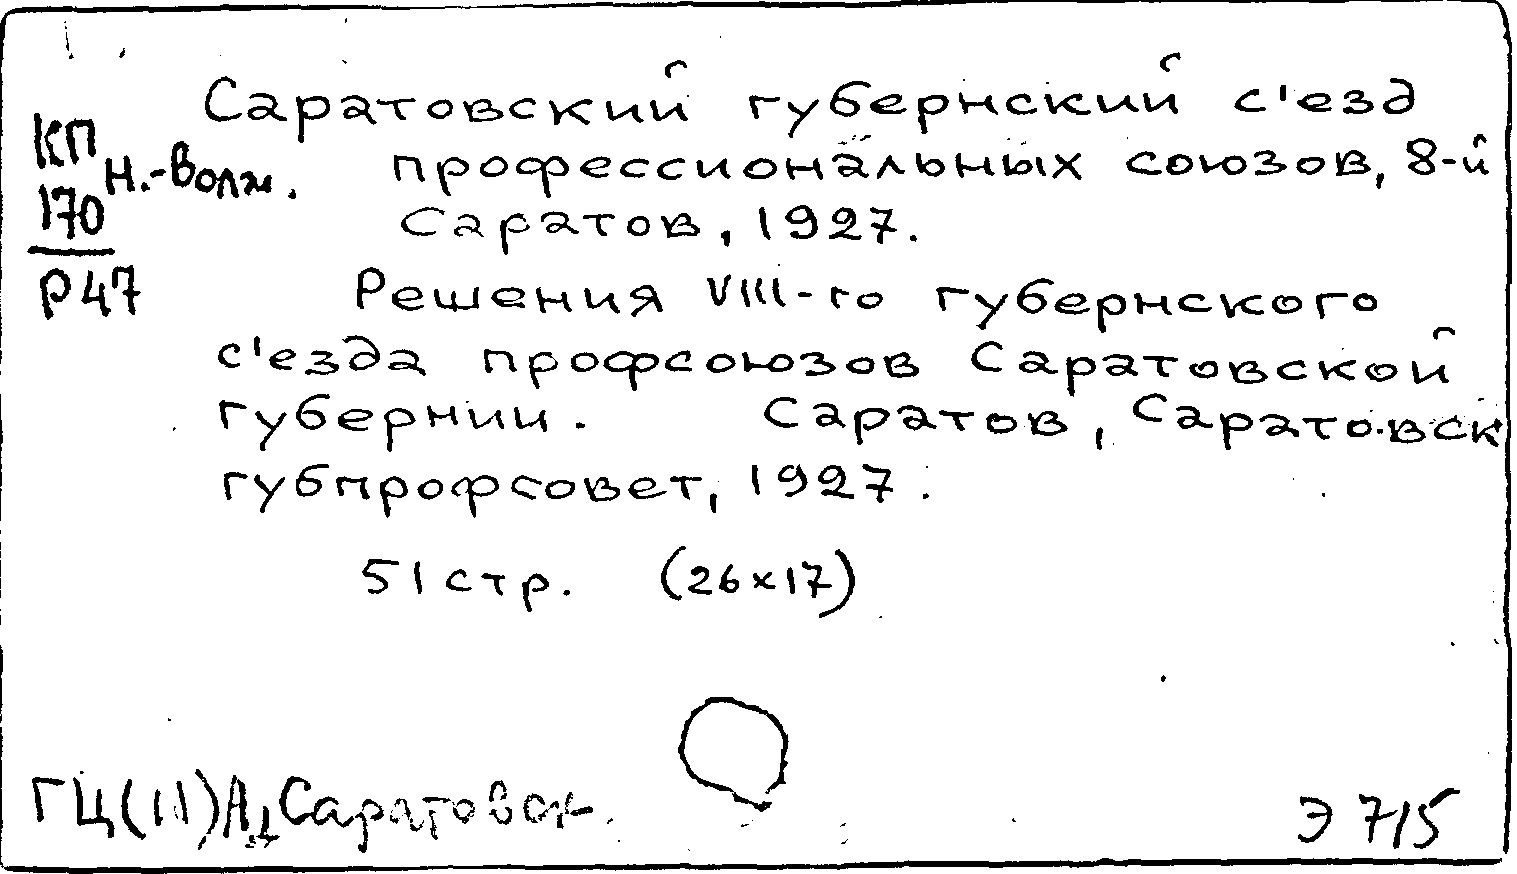 Саратовский губернский с'езд
профессиональных союзов, 8-й
Саратов, 1927.
КП
Н.-Волж.
170
Р47
Решения VIII-го губернского
с'езда профсоюзов Саратовской
губернии. Саратов, Саратовск
губпрофсовет, 1927.
51 стр. (26х17)
Саратовск.
Э 715